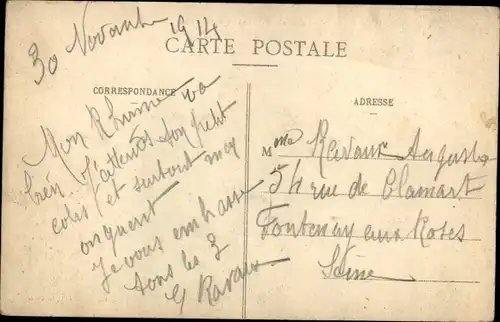 30 Novembre 1914
CARTE POSTALE
CORRESPONDANCE
Mon Rhume va
bien. J'attends ton petit
colis et surtout mon
onguent
Je vous embrasse
tous les 3
G Ravaux
ADRESSE
Mme Ravaux Auguste
54 rue de Clamart
Fontenay aux Roses
Seine